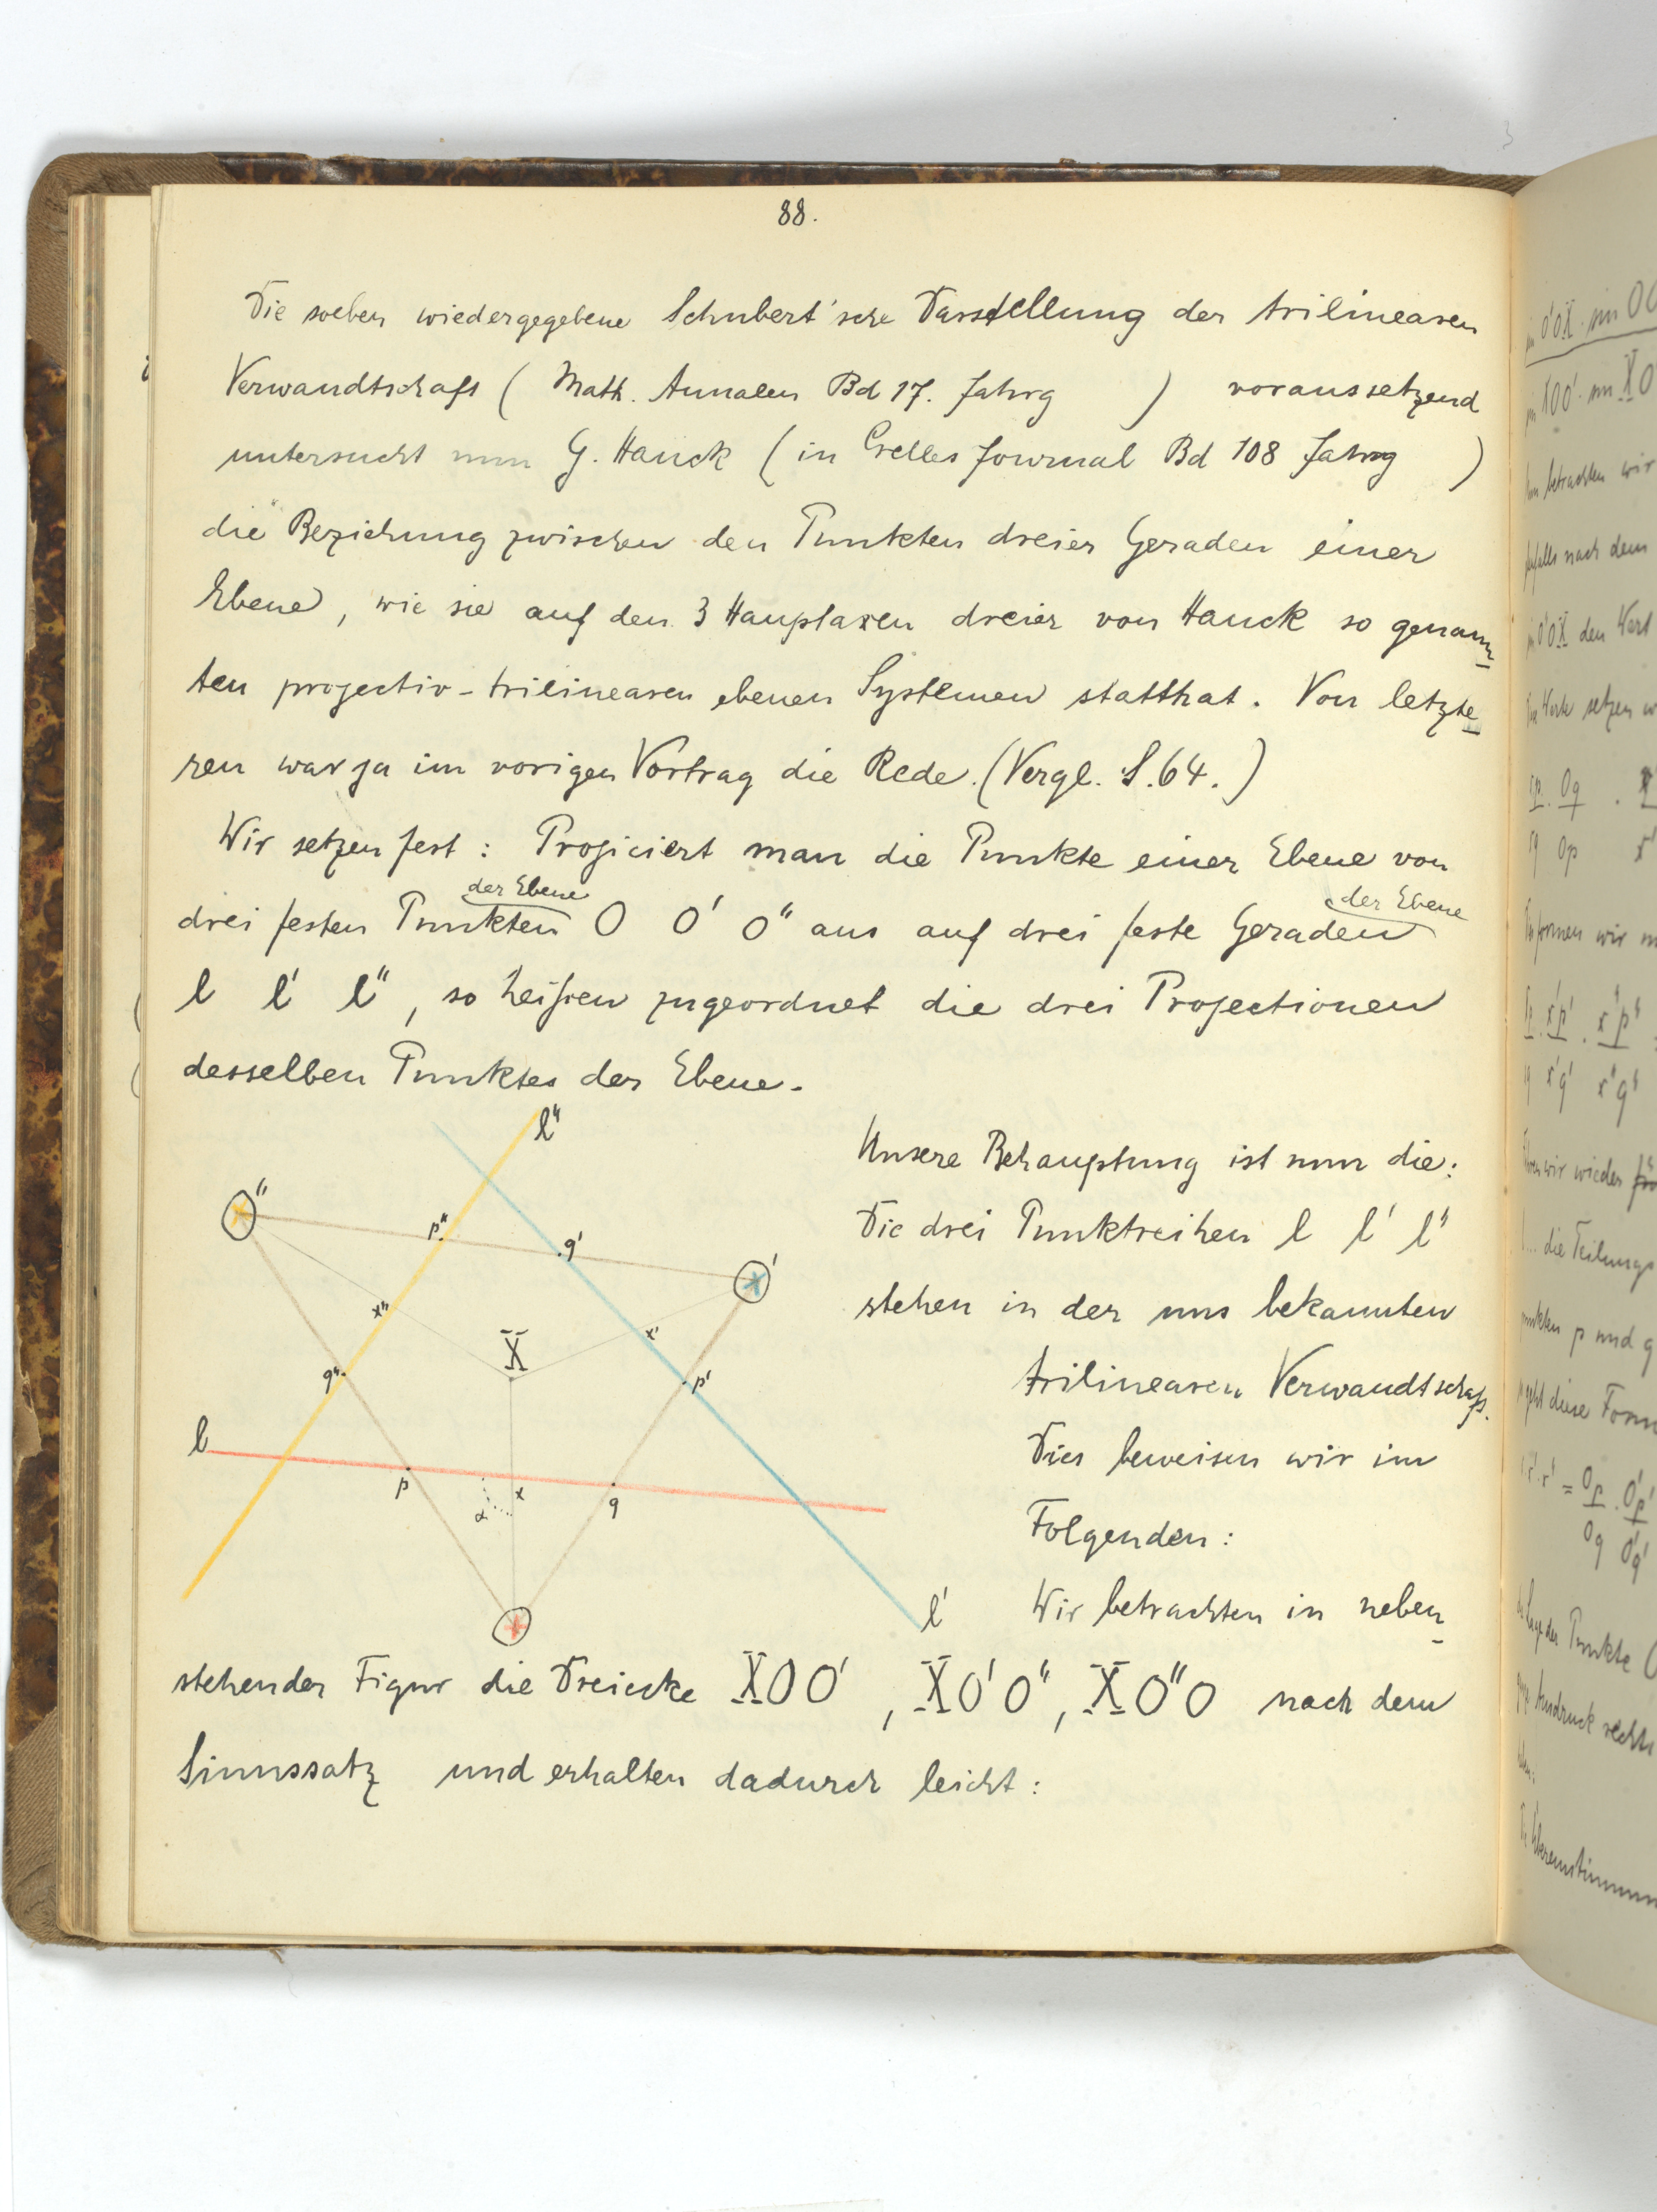 88.
Die soeben wiedergegebene Schubert'sche Darstellung der trilinearen
Verwandtschaft ( Math. Annalen Bd 17. Jahrg ) voraussetzend
untersucht nun G. Hauck ( in Crelles Journal Bd 108 Jahrg )
die Beziehung zwischen den Punkten dreier Geraden einer
Ebene, wie sie auf den 3 Hauptaxen dreier von Hauck so genann-
ten projectiv-trilinearen ebenen Systemen statthat. Von letzte-
ren war ja im vorigen Vortrag die Rede. (Vergl. S. 64.)
Wir setzen fest: Projiciert man die Punkte einer Ebene von
der Ebene
der Ebene
drei festen Punkten O O' O'' aus auf drei feste Geraden
l l' l'', so heißen zugeordnet die drei Projectionen
desselben Punktes der Ebene.
l''
O''
p''
q'
O'
x''
X
x'
q''
p'
l
p
x
α
q
O
l'
Unsere Behauptung ist nun die:
Die drei Punktreihen l l' l''
stehen in der uns bekannten
trilinearen Verwandtschaft.
Dies beweisen wir im
Folgenden:
Wir betrachten in neben-
stehender Figur die Dreiecke XOO', XO'O'', XO''O nach dem
Sinussatz und erhalten dadurch leicht:
den Wert
betrachten wir
nach dem
formen wir
wir wieder
die Teilungs
punkten p und q
diese Form
der Punkte
Ausdruck rechts